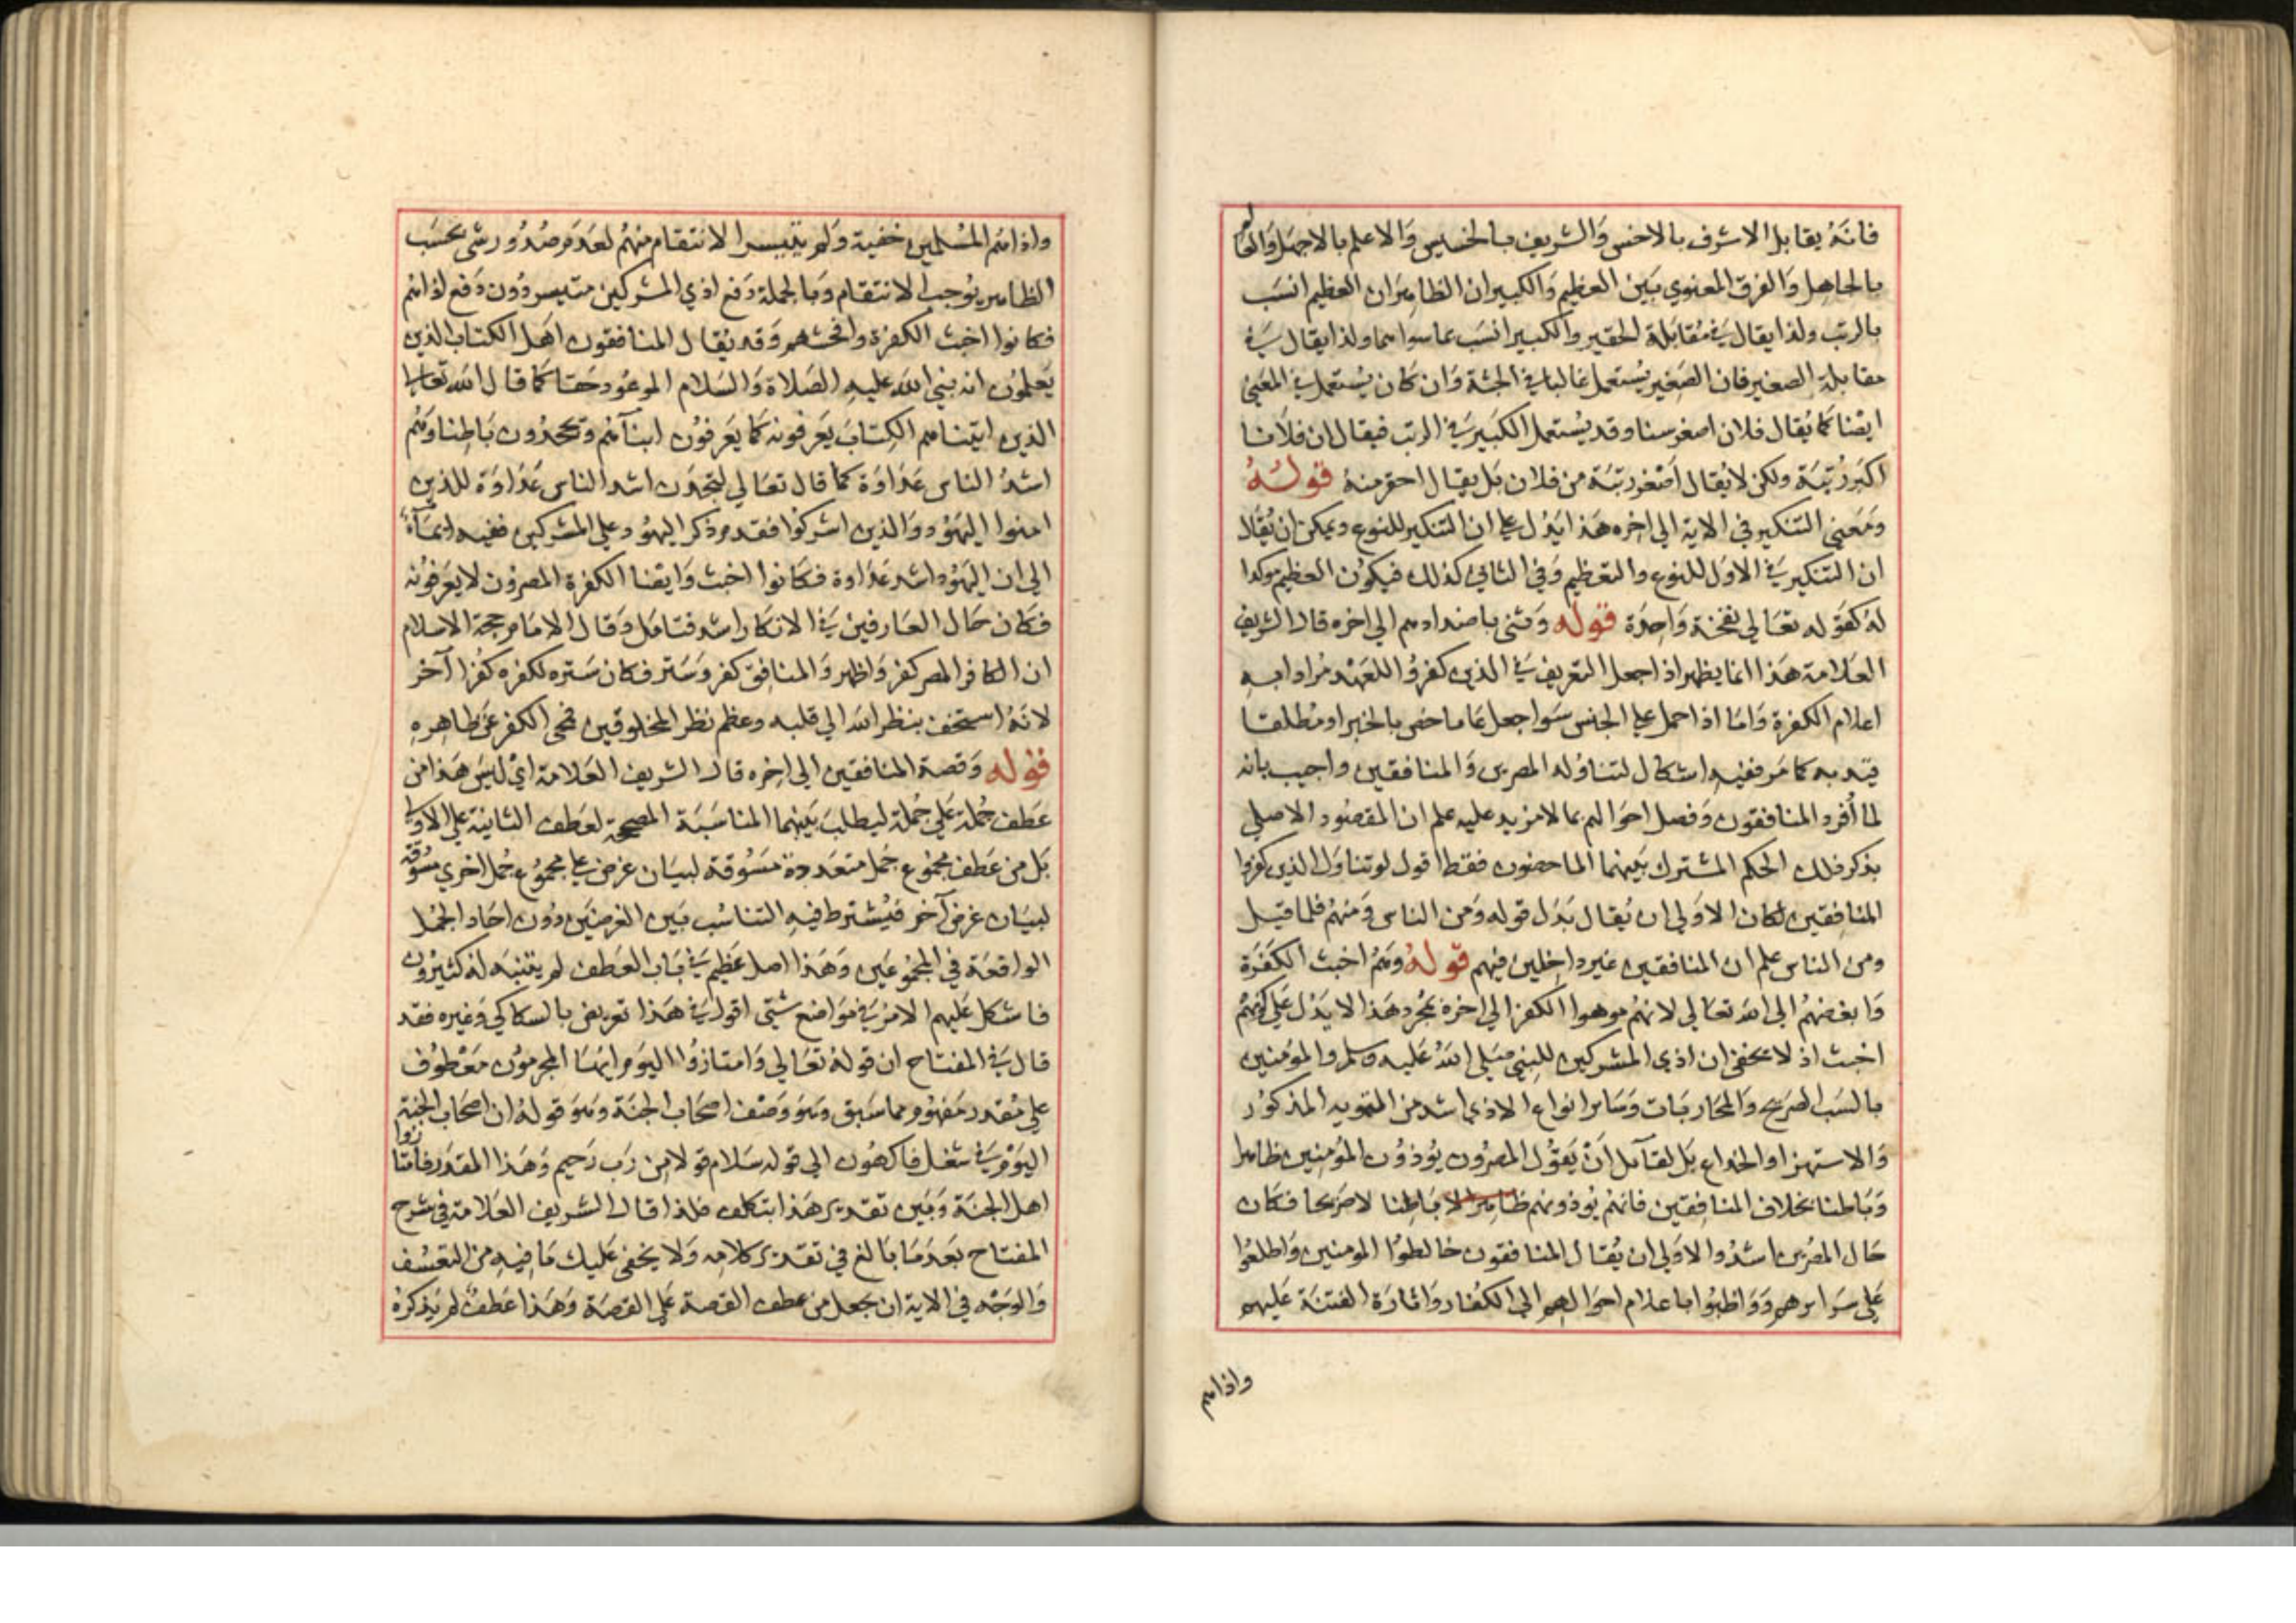 فانه يقابل الاشرف بالاخس والشريف بالخسيس والاعلم بالاجهل والعالم
بالجاهل والفرق المعنوي بين العظيم والكبير ان الظاهر ان العظيم انسب
بالرتب ولذا يقال في مقابلة الحقير والكبير انسب بما سواها ولذا يقال في
مقابلة الصغير فان الصغير يستعمل غالبا في الجثة وان كان يستعمل في المعنى
ايضا كما يقال فلان اصغر سنا وقد يستعمل الكبير في الرتب فيقال ان فلانا
اكبر رتبة ولكن لا يقال اصغر رتبة من فلان بل يقال احقر منه قوله
ومعني التنكير في الاية الي اخره هذا يدل علي ان التنكير للنوع ويمكن ان يقال
ان التنكير في الاول للنوع والتعظيم وفي الثاني كذلك فيكون العظيم موكدا
له كقوله تعالي نفخة واحدة قوله وثني باضدادهم الي اخره قال الشريف
العلامة هذا انما يظهر اذا جعل التعريف في الذين كفروا للعهد مرادا به
اعلام الكفرة واما اذا حمل علي الجنس سوا جعل عاما خص بالخبر او مطلقا
قيد به كما مر ففيه اشكال لتناوله المصرين والمنافقين واجيب بانه
لما أفرد المنافقون وفصل احوالهم بما لا مزيد عليه علم ان المقصود الاصلي
بذكر ذلك الحكم المشترك بينهما الماحضون فقط اقول لو تناول الذين كفروا
المنافقين لكان الاولي ان يقال بدل قوله ومن الناس ومنهم فلما قيل
ومن الناس علم ان المنافقين غير داخلين فيهم قوله وهم اخبث الكفرة
وابغضهم الي الله تعالي لانهم موهوا الكفر الي اخره مجرد هذا لا يدل علي كونهم
اخبث اذ لا يخفي ان اذي المشركين للنبي صلي الله عليه وسلم والمؤمنين
بالسب الصريح والمحاربات وسائر انواع الاذي اشد من التمويه المذكور
والاستهزا والخداع بل لقائل أن يقول المصرون يوذون المؤمنين ظاهرا
وباطنا بخلاف المنافقين فانهم يوذونهم ظاهرا لا باطنا لا صريحا فكان
حال المصرين اشد والاولي ان يقال المنافقون خالطوا المومنين واطلعوا
علي سرايرهم وواظبوا باعلام احوالهم الي الكفار واثارة الفتنة عليهم
واذاهم
واذاهم المسلمين خفية ولم يتيسر الانتقام منهم لعدم صدور شي بحسب
الظاهر يوجب الانتقام وبالجملة دفع اذي المشركين متيسر دون دفع اذاهم
فكانوا اخبث الكفرة وافحشهم وقد يقال المنافقون اهل الكتاب الذين
يعلمون انه نبي الله عليه الصلاة والسلام الموعود حقا كما قال الله تعالي
الذين اتيناهم الكتاب يعرفونه كما يعرفون ابنآهم ويجحدون باطنا وهم
اشد الناس عداوة كما قال تعالي لتجدن اشد الناس عداوة للذين
امنوا اليهود والذين اشركوا فقدم ذكر اليهود علي المشركين ففيه ايمآء
الي ان اليهود اشد عداوة فكانوا اخبث وايضا الكفرة المصرون لا يعرفونه
فكان حال العارفين في الانكار اشد فتامل وقال الامام حجة الاسلام
ان الكافر المصر كفر واظهر والمنافق كفر وستر فكان ستره لكفره كفرا آخر
لانه استخف بنظر الله الي قلبه وعظم نظر المخلوقين فمحي الكفر عن ظاهره
قوله وقصة المنافقين الي اخره قال الشريف العلامة اي ليس هذا من
عطف جملة علي جملة ليطلب بينهما المناسبة المصححة لعطف الثانية علي الاولي
بل من عطف مجموع جمل متعددة مسوقة لبيان غرض علي مجموع جمل اخري مسوقة
لبيان غرض آخر فيشترط فيه التناسب بين الغرضين دون احاد الجمل
الواقعة في المجموعين وهذا اصل عظيم في باب العطف لم يتنبه له كثيرون
فاشكل عليهم الامر في مواضع شتي اقول في هذا تعريض بالسكاكي وغيره فقد
قال في المفتاح ان قوله تعالي وامتازوا اليوم ايها المجرمون معطوف
علي مقدر مفهوم مما سبق وهو وصف اصحاب الجنة وهو قوله ان اصحاب الجنة
اليوم في شغل فاكهون الي قوله سلام قولا من رب رحيم وهذا المقدر فامتازوا
اهل الجنة وبين تقدير هذا بتكلف فلذا قال الشريف العلامة في شرح
المفتاح بعد ما بالغ في تقدير كلامه ولا يخفي عليك ما فيه من التعسف
والوجه في الاية ان يجعل من عطف القصة علي القصة وهذا عطف لم يذكره